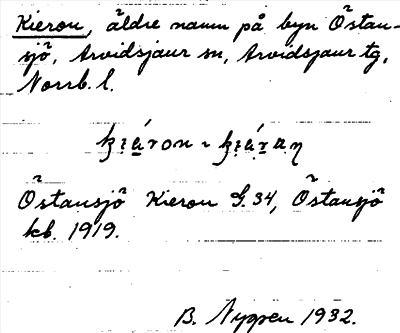 Kieron, äldre namn på byn Östan-
sjö, Arvidsjaur sn, Arvidsjaur tg,
Norrb. l.
ḱi̯áron ~ ḱi̯áraŋ
Östansjö Kieron G.34, Östansjö
kb. 1919.
B. Nygren 1932.